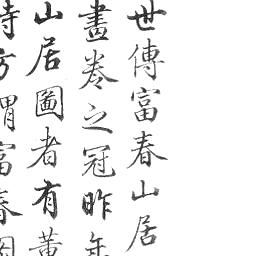 世傳富春山居
畫卷之冠昨年
山居圖者有董
時方謂富春圖